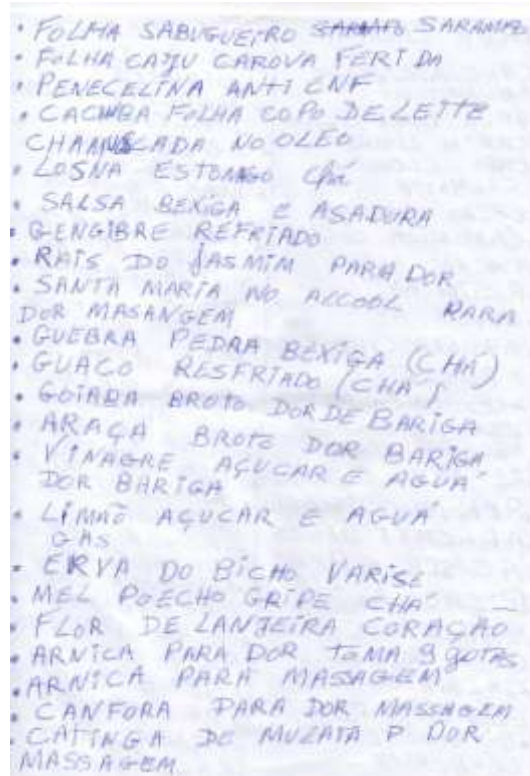 • FOLHA SABUGUEIRO SARAMPO SARAMPO
• FOLHA CAJU CAROVA FERIDA
• PENECELINA ANTI INF
• CACHIBA FOLHA COPO DE LEITE
CHAMUSCADA NO OLEO
• LOSNA ESTOMAGO CHÁ
• SALSA BEXIGA E ASADURA
• GENGIBRE REFRIADO
• RAIS DO JASMIM PARA DOR
• SANTA MARIA NO ALCOOL PARA
DOR MASANGEM
• GUEBRA PEDRA BEXIGA (CHÁ)
• GUACO RESFRIADO (CHÁ)
• GOIABA BROTO DOR DE BARIGA
• ARAÇA BROTO DOR BARIGA
• VINAGRE AÇUCAR E AGUA
DOR BARIGA
• LIMAO AÇUCAR E AGUA
GAS
• ERVA DO BICHO VARISE
• MEL POECHO GRIPE CHÁ
• FLOR DE LANJEIRA CORAÇÃO
• ARNICA PARA DOR TOMA 9 GOTAS
• ARNICA PARA MASSAGEM
• CANFORA PARA DOR MASSAGEM
• CATINGA DE MULATA P DOR
MASSAGEM